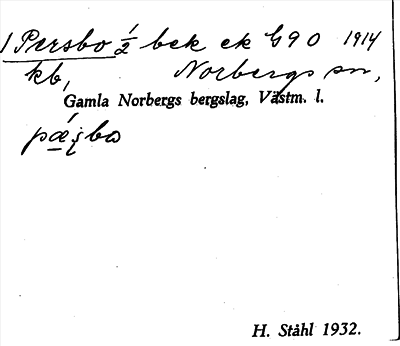 1 Persbo 1/2 bek ek G90 1914
kb, Norbergs sn,
Gamla Norbergs bergslag, Västm. l.
H. Ståhl 1932.